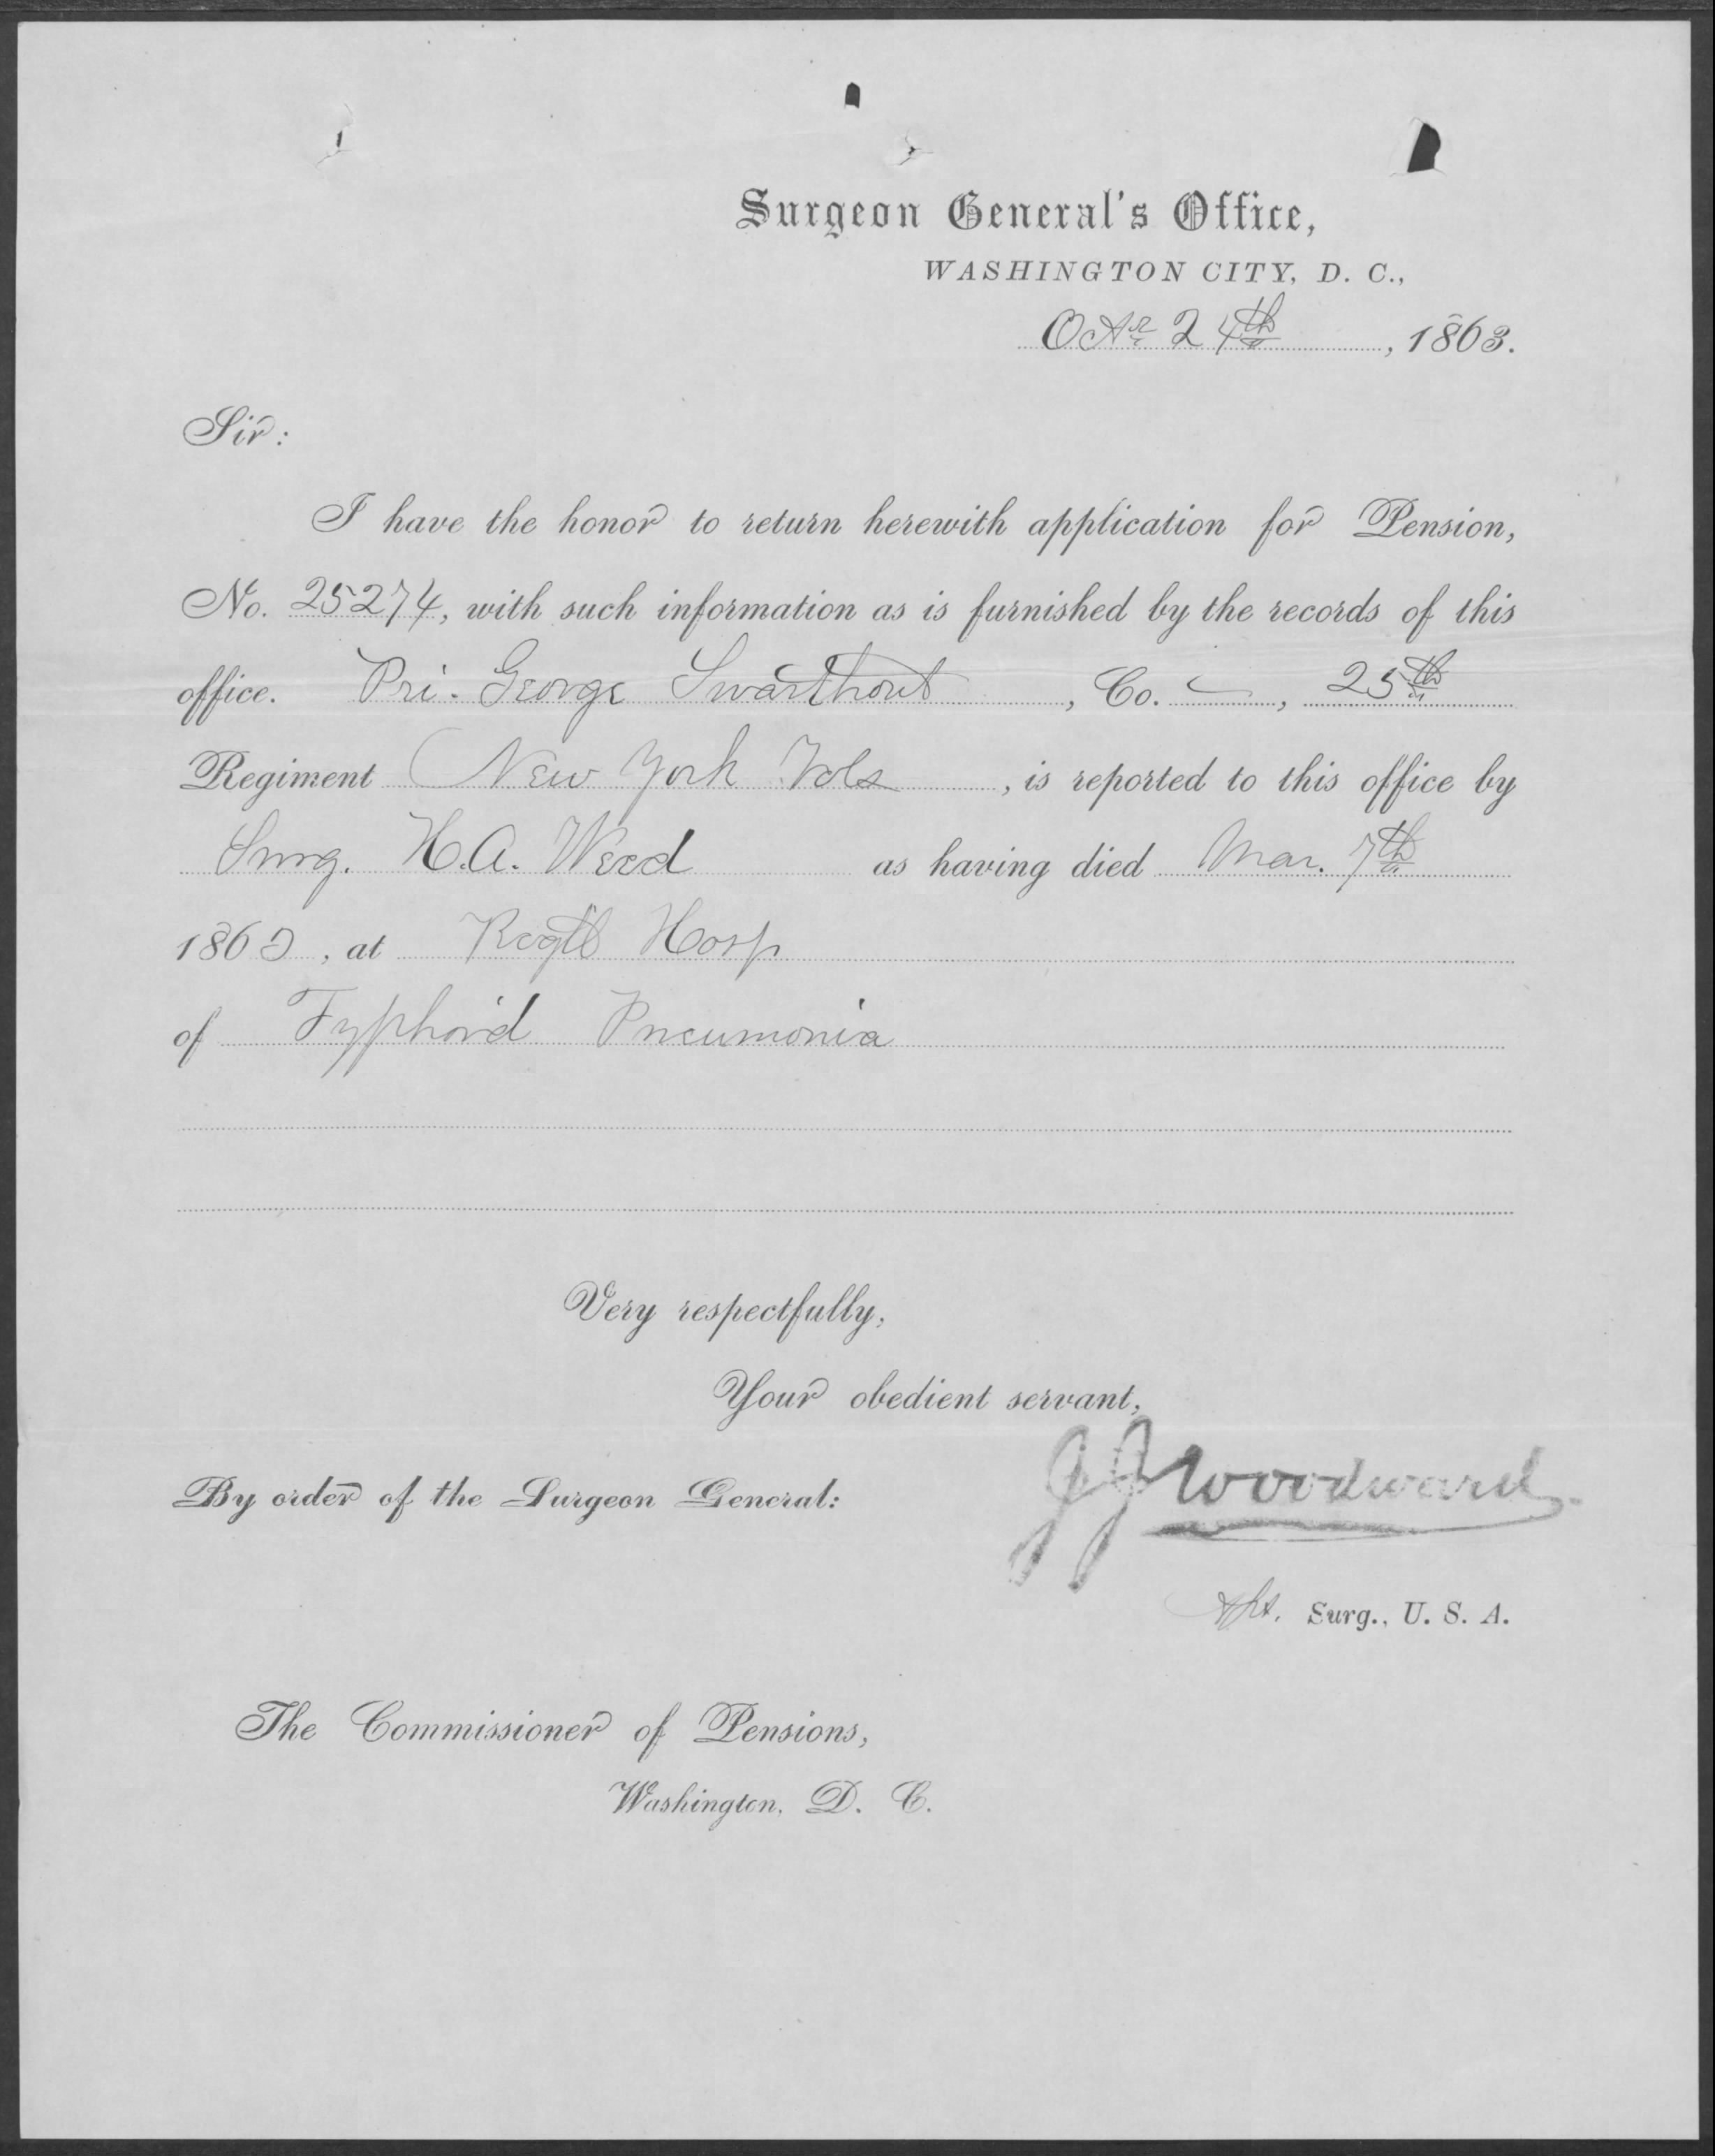 Surgeon General's Office,
WASHINGTON CITY, D. C.,
Octr 24th, 1863.
Sir:
I have the honor to return herewith application for Pension,
No. 25274, with such information as is furnished by the records of this
office. Pri. George Swarthout, Co. —, 25th
Regiment New York Vols, is reported to this office by
Surg. H.A. Weed as having died Mar. 7th
186, at Regtl Hosp
of Typhoid Pneumonia
Very respectfully,
Your obedient servant,
By order of the Surgeon General:
JJWoodward
Surg., U. S. A.
The Commissioner of Pensions,
Washington, D. C.